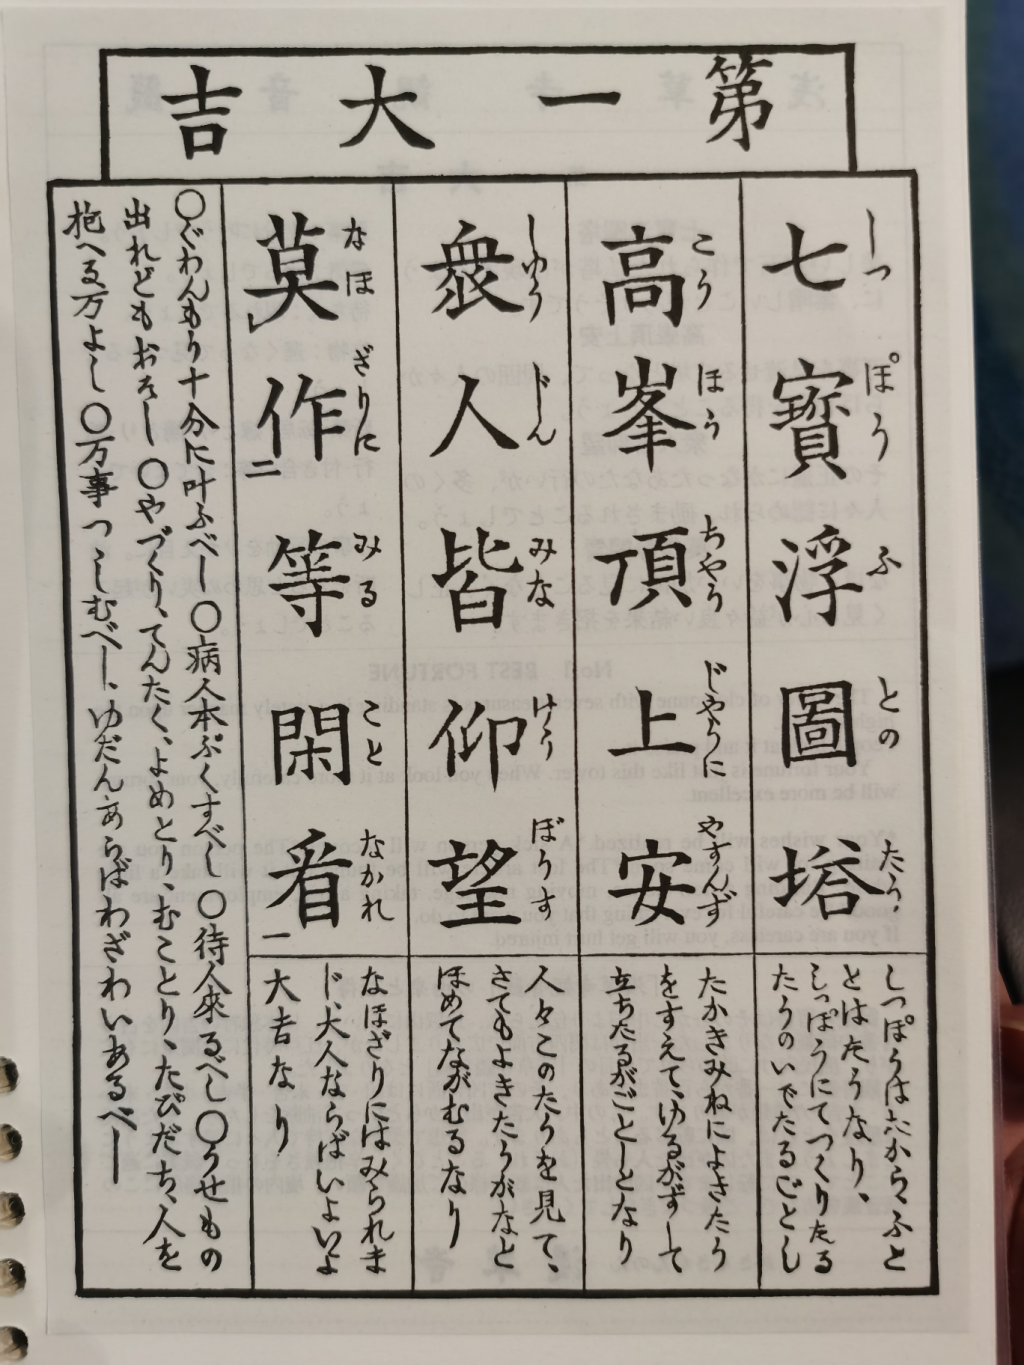 第一大吉
七寶浮圖塔
しっぽうふとのたう
しっぽうは六から、ふと
とはたうなり、
しっぽうにてつくりたる
たうのいでたるごとし
高峯頂上安
こうほうちやうじやうにやすんず
たかきみねによきたう
をすえて、ゆるがずして
立ちたるがごとしとなり
衆人皆仰望
しゆうじんみなけうぼうす
人々このたうを見て、
さてもよきたうがなと
ほめてながむるなり
莫作二等閑看一
なほざりにみることなかれ
なほざりにはみられま
じ、大人ならばいよいよ
大吉なり
〇ぐわんもう十分に叶ふべし〇病人本ぷくすべし〇待人來るべし〇うせもの
出れどもおそし〇やづくり、てんたく、よめとり、むことり、たびだち、人を
抱へる万よし〇万事つゝしむべし、ゆだんあらばわざわいあるべし
No.1 BEST FORTUNE